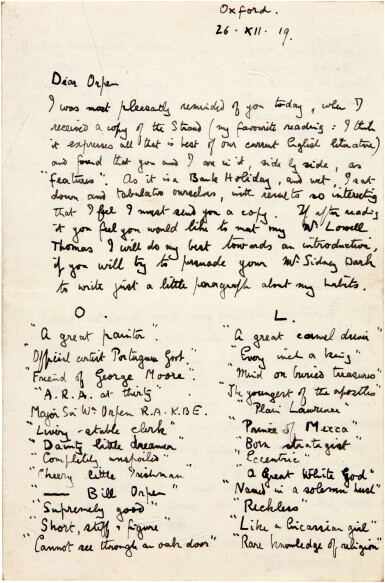 Oxford.
26. XII. 19.
Dear Orpen
I was most pleasantly reminded of you today, when I
received a copy of the Strand (my favourite reading: I think
it expresses all that is best of our current English literature)
and found that you and I are in it, side by side, as
"features". As it is a Bank Holiday, and wet, I sat
down and tabulated ourselves, with results so interesting
that I feel I must send you a copy. If after reading
it you feel you would like to meet my Mr Lowell
Thomas I will do my best towards an introduction,
if you will try to persuade your Mr Sidney Dark
to write just a little paragraph about my habits.
O.
"A great painter".
"Official artist Portuguese Govt."
"Friend of George Moore"
"A.R.A. at thirty
Major Sir Wm Orpen R.A. K.B.E.
"Livery-stable clerk"
"Dainty little dreamer"
"Completely unspoiled"
"Cheery little Irishman"
"—— Bill Orpen"
"Supremely good"
"Short, stiff figure"
"Cannot see through an oak door"
L.
"A great camel driver"
"Every inch a king"
"Mind on buried treasures"
"The youngest of the apostles"
"Plain Lawrence"
"Prince of Mecca"
"Born strategist"
"Eccentric"
"A Great White God"
"Named in a solemn hush"
"Reckless"
"Like a Circassian girl"
"Rare knowledge of religion"